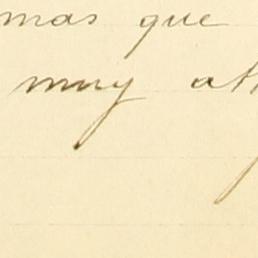 mas que
muy att